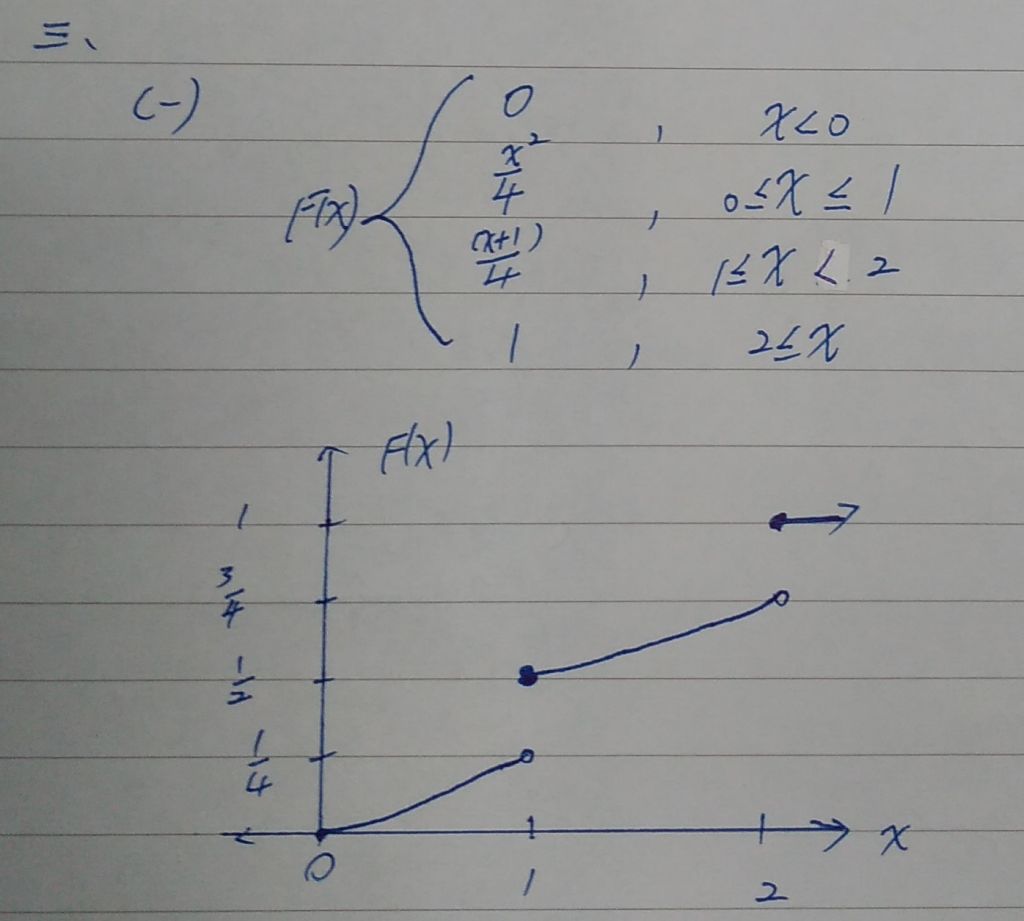 三、
(一)
F(x)
0 , x<0
x²/4 , 0≤x≤1
(x+1)/4 , 1≤x<2
1 , 2≤x
F(x)
1
3/4
1/2
1/4
x
0 1 2